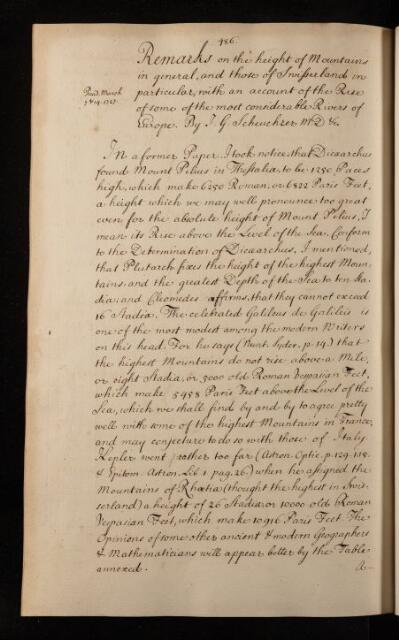 486.
Remarks on the height of Mountains
in general, and those of Swisserland in
particular, with an account of the Rise
of some of the most considerable Rivers of
Europe. By J. G. Scheuchzer M.D. &c.
Read March
In a former Paper I took notice, that Dicaarchus
found Mount Pelius in Thessalia, to be 1250 Paces
high, which make 6250 Roman, or 6822 Paris Feet,
a height which we may well pronounce too great
even for the absolute height of Mount Pelius, I
mean its Rise above the Level of the Sea. Conform
to the Determination of Dicaarchus, I mentioned,
that Plutarch fixes the height of the highest Moun-
tains, and the greatest Depth of the Sea to ten Sta-
dia, and Cleomedes affirms, that they cannot exceed
16 Stadia. The celebrated Galileus de Galileis is
one of the most modest among the modern Writers
on this head. For he says (Nunt. Syder. p. 14.) that
the highest Mountains do not rise above a Mile,
or eight Stadia, or 5000 old Roman Vespasian Feet,
which make 5458 Paris Feet above the Level of the
Sea, which we shall find by and by to agree pretty
well with some of the highest Mountains in France,
and may conjecture to do so with those of Italy.
Kepler went rather too far (Astron. Optic. p. 129. 118.
& Epitom. Astron. Lib. 1 pag. 26.) when he assigned the
Mountains of Rhætia (thought the highest in Swis-
serland) a height of 26 Stadia or 10000 old Roman
Vespasian Feet, which make 10916 Paris Feet. The
Opinions of some other ancient & modern Geographers
& Mathematicians will appear better by the Table
annexed.